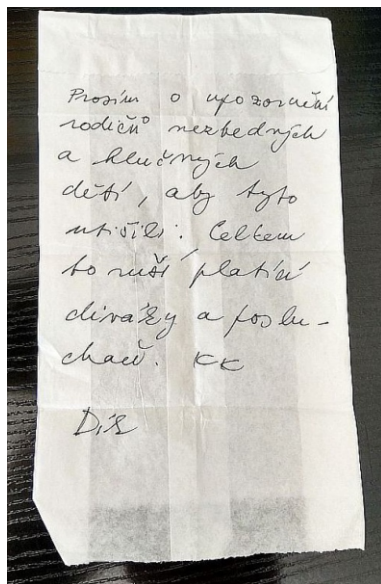 Prosím o upozornění
rodičů nezbedných
a hlučných
dětí, aby tyto
utišili. Celkem
to ruší platící
diváky a poslu-
chače. KK
Dík